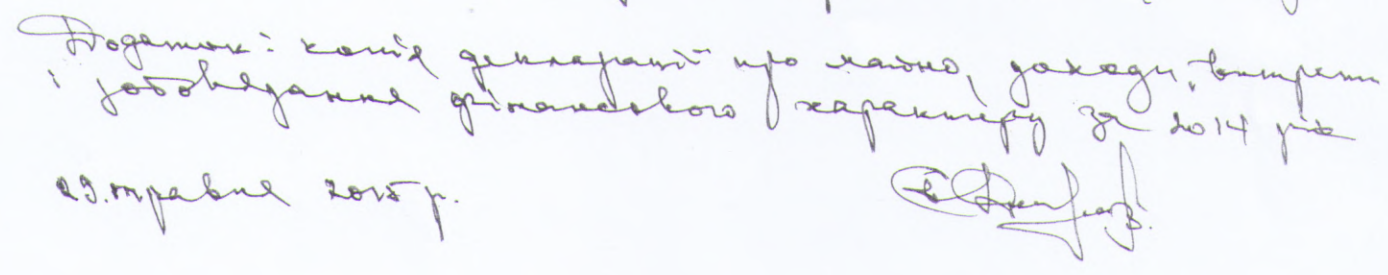 Додаток: копія декларації про майно, доходи, витрати
і зобов'язання фінансового характеру за 2014 рік
29 травня 2015 р.